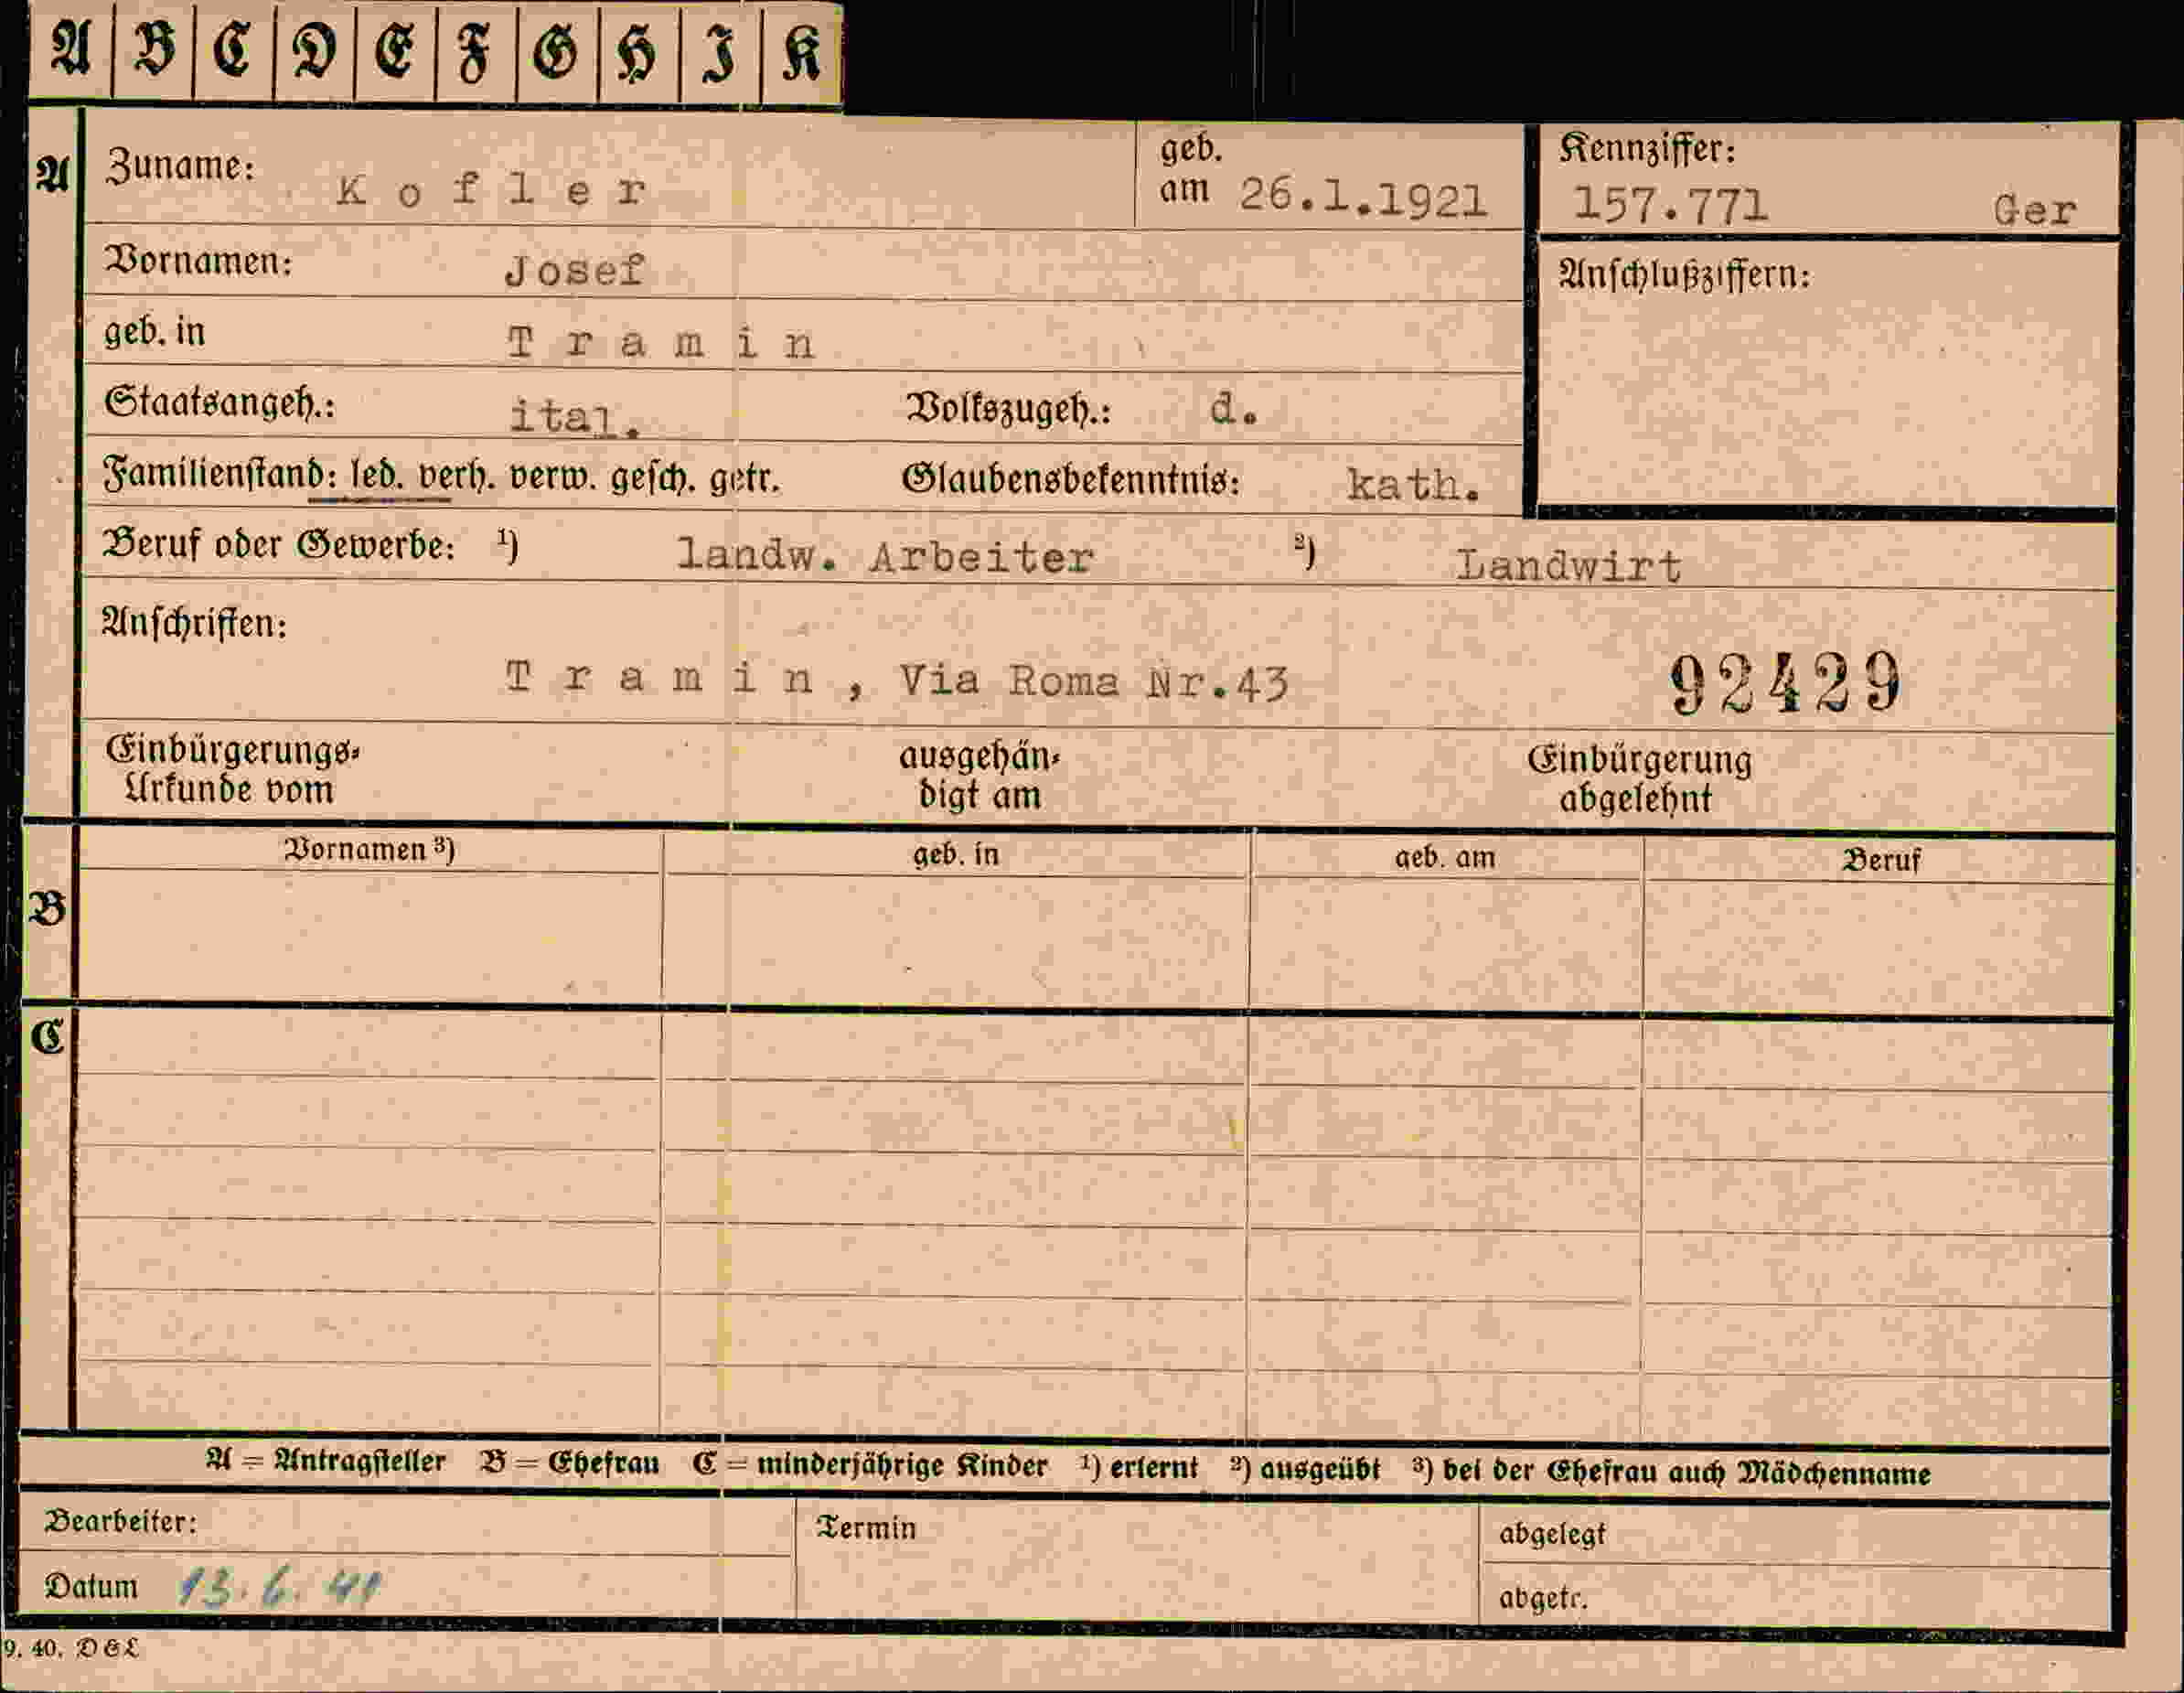 A B C D E F G H I K
A Zuname: K o f l e r geb. am 26.1.1921 Kennziffer: 157.771 Ger
Vornamen: Josef Anschlußziffern:
geb. in T r a m i n
Staatsangeh.: ital. Volkszugeh.: d.
Familienstand: led. verh. verw. gesch. getr. Glaubensbekenntnis: kath.
Beruf oder Gewerbe: ¹) landw. Arbeiter ²) Landwirt
Anschriften:
T r a m i n , Via Roma Nr.43 92429
Einbürgerungs- ausgehän- Einbürgerung
Urkunde vom digt am abgelehnt
Vornamen ³) geb. in geb. am Beruf
B
C
A = Antragsteller B = Ehefrau C = minderjährige Kinder ¹) erlernt ²) ausgeübt ³) bei der Ehefrau auch Mädchenname
Bearbeiter: Termin abgelegt
Datum 13.6.41 abgetr.
9. 40. DGL